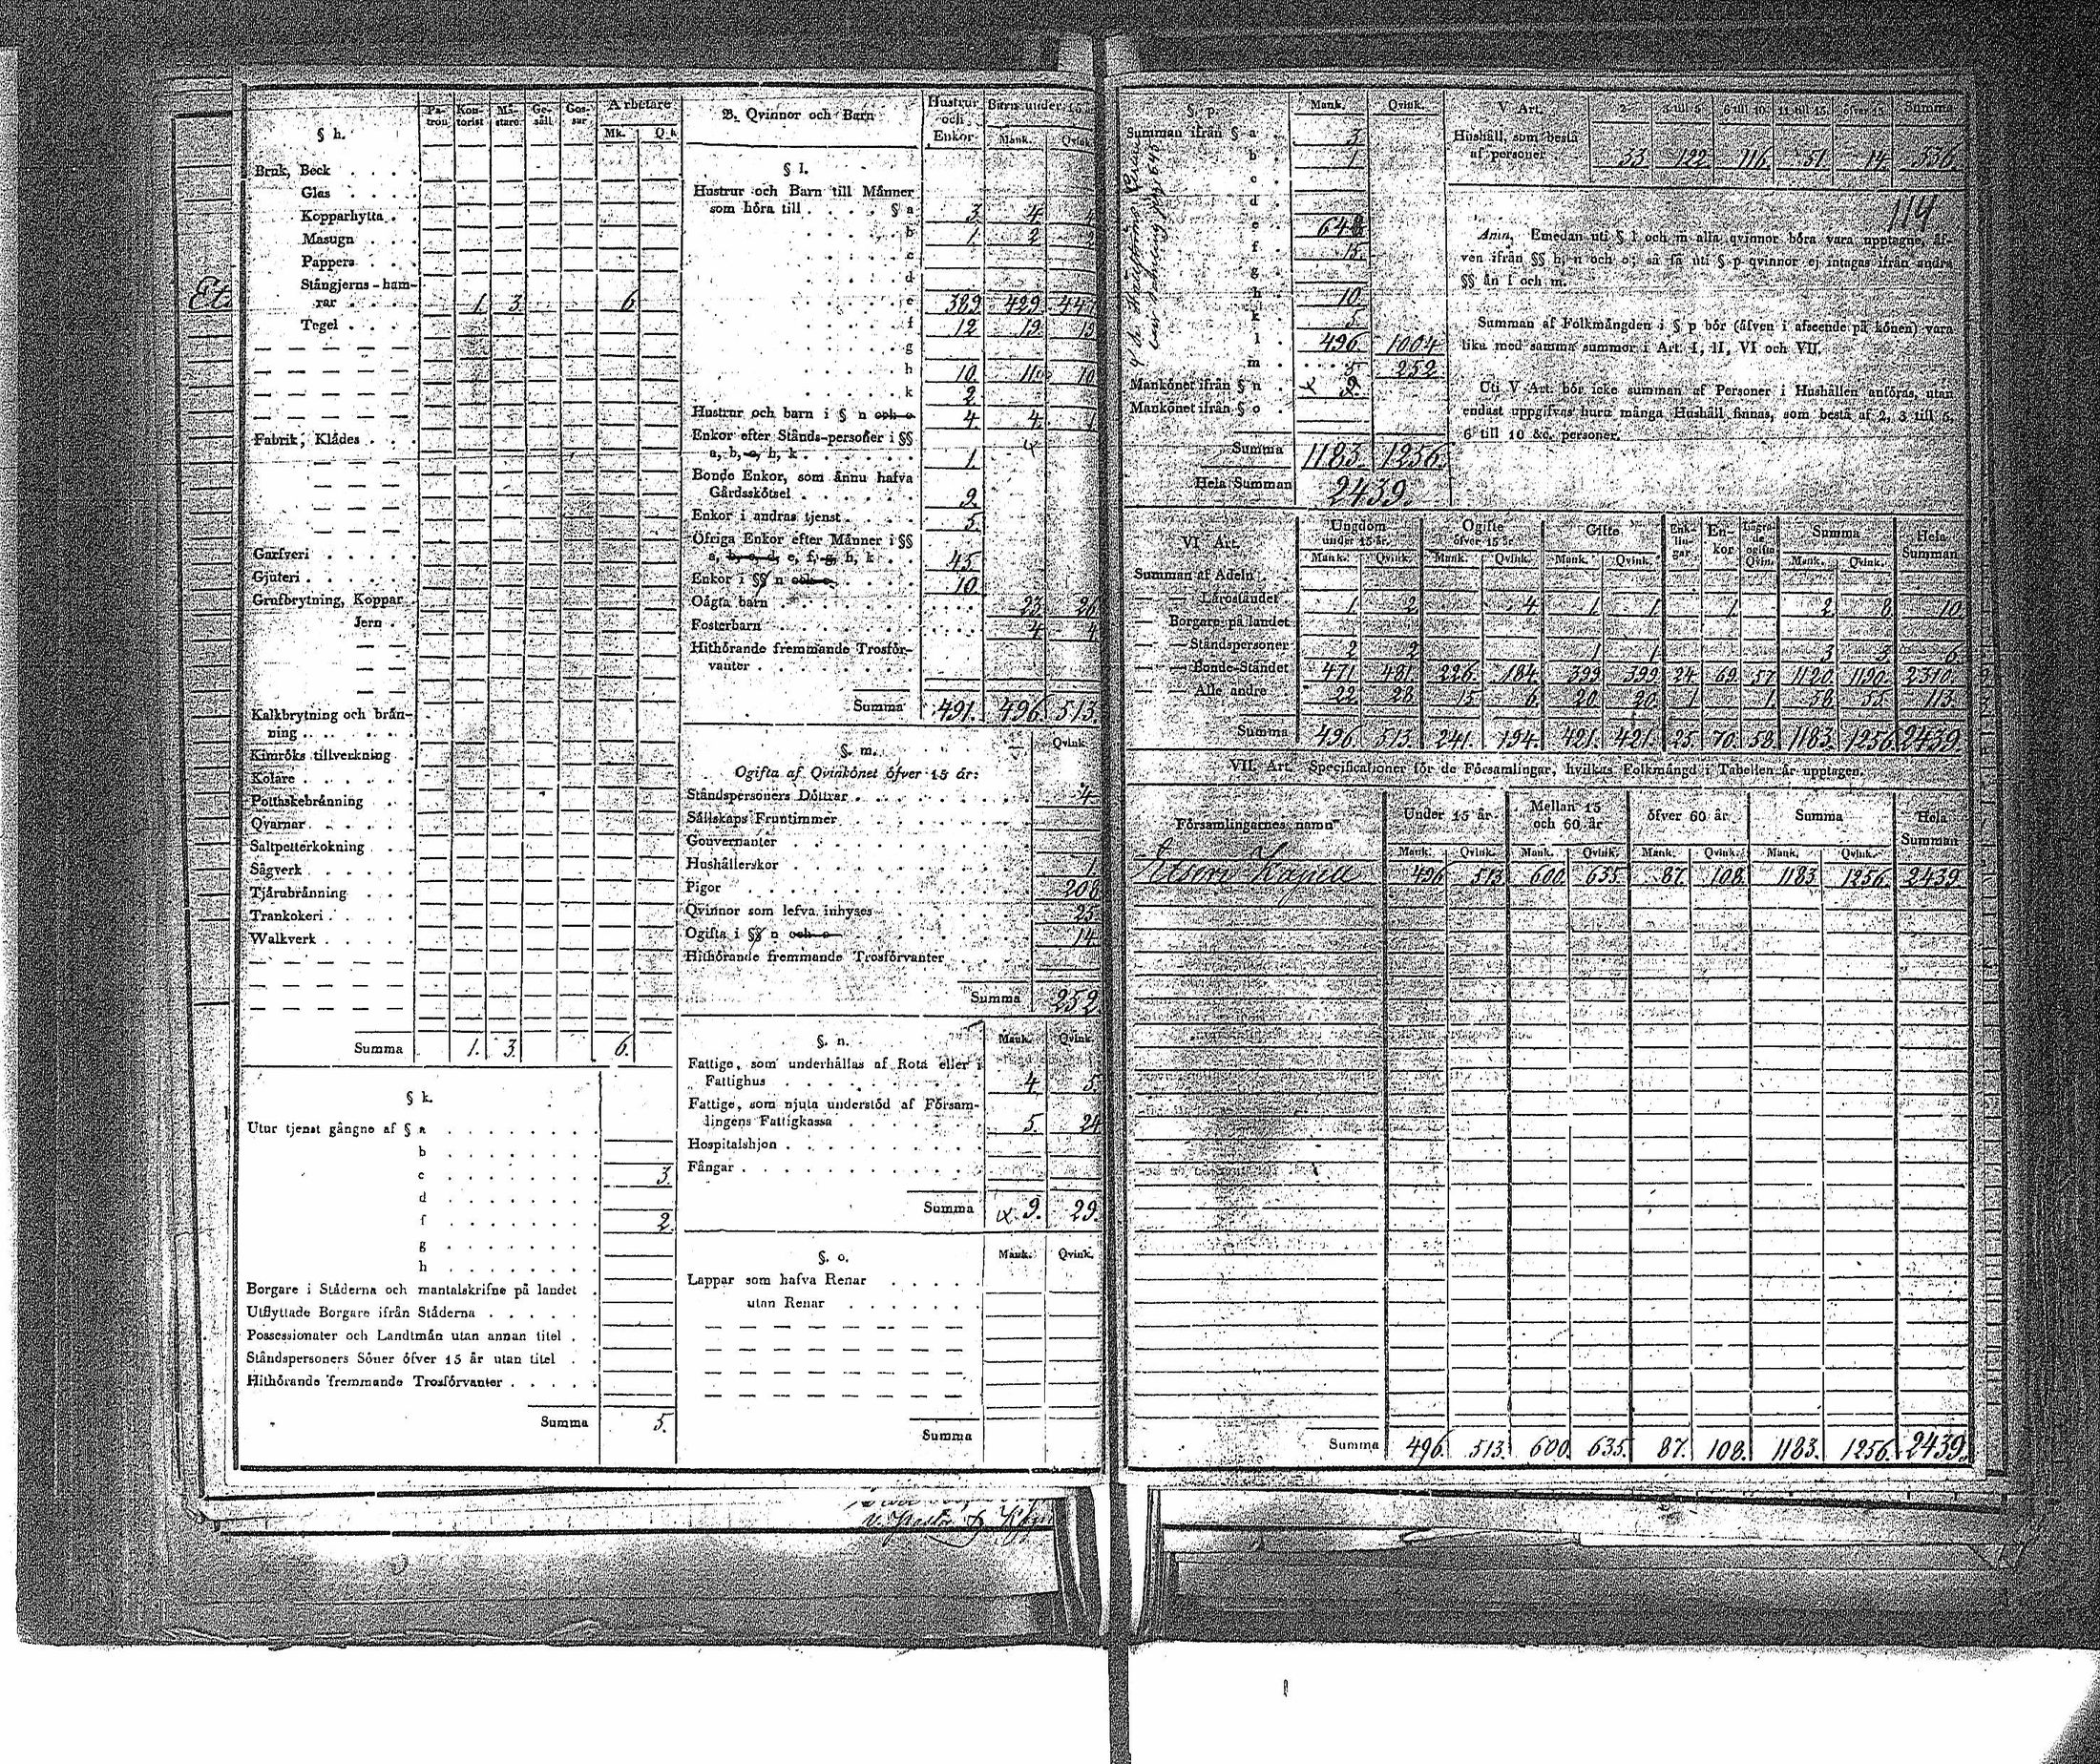 § h.
Pa-tron Kon-torist Må-stare Ge-säll Gos-sar Arbetare
Mk. Q k.
Bruk, Beck . . . .
Glas . . . .
Kopparhytta . .
Masugn . . .
Pappers . . .
Stångjerns-ham-
rar . . . . 1. 3. 6.
Tegel . . . .
Fabrik, Klådes . . .
Garfveri . . . . .
Gjuteri . . . . .
Grufbrytning, Koppar .
Jern . .
Kalkbrytning och brån-
ning . . . . . .
Kimröks tillverkning .
Kolare . . . . .
Potthskebrånning . .
Qvarnar . . . . .
Saltpetterkokning . .
Sågverk . . . . .
Tjårubrånning . . .
Trankokeri . . . .
Walkverk . . . . .
Summa 1. 3. 6.
§ k.
Utur tjenst gångne af § a . . . . . . .
b . . . . . . .
c . . . . . . . 3.
d . . . . . . .
f . . . . . . . 2.
g . . . . . . .
h . . . . . . .
Borgare i Ståderna och mantalskrifne på landet .
Utflyttade Borgare ifrån Ståderna . . . . .
Possessionater och Landtmån utan annan titel . .
Ståndspersoners Söner öfver 15 år utan titel . .
Hithörande fremmande Trosförvanter . . . . .
Summa 5.
B. Qvinnor och Barn
Hustrur och Enkor Barn under 15 år
Mank. Qvink.
§ l.
Hustrur och Barn till Månner
som höra till . . . . § a 3. 4.
b 1. 2. 2
c
d
e 389. 429. 44
f 12 19
g
h 10. 11 10
k 2.
Hustrur och barn i § n och o 4. 4. 1.
Enkor efter Stånds-personer i §§
a, b, c, h, k . . . . . . . 1.
Bonde Enkor, som ånnu hafva
Gårdsskötsel . . . . . . 9.
Enkor i andras tjenst . . . . 5.
Öfriga Enkor efter Månner i §§
a, b, c, d, e, f, g, h, k . . 45.
Enkor i §§ n och o . . . . 10.
Oågta barn . . . . . . . 23. 26
Fosterbarn . . . . . . . 4. 4.
Hithörande fremmande Trosför-
vanter . . . . . . . .
Summa 491. 496. 513.
§. m.
Qvink.
Ogifta af Qvinkönet öfver 15 år:
Ståndspersoners Döttrar . . . . . . 4.
Sållskaps Fruntimmer . . . . . .
Gouvernanter . . . . . .
Hushållerskor . . . . . . 1.
Pigor . . . . . . 208
Qvinnor som lefva inhyses . . . . 25.
Ogifta i §§ n och o . . . . 14.
Hithörande fremmande Trosförvanter . .
Summa 252
§. n. Mank. Qvink.
Fattige, som underhållas af Rota eller i
Fattighus . . . . . . . 4. 5.
Fattige, som njuta understöd af Försam-
lingens Fattigkassa . . . . . 5. 24
Hospitalshjon . . . . . . .
Fångar . . . . . . .
Summa 9. 29.
§. o. Mank. Qvink.
Lappar som hafva Renar . . . . .
utan Renar . . . . . .
Summa
v. Pastor
§. p. Mank. Qvink.
Summan ifrån § a . 3.
b . 1.
c .
d .
e . 648
f . 15.
g .
h . 10.
k . 5.
l . 496. 1004.
m . 5. 252.
Mankönet ifrån § n . 9.
Mankönet ifrån § o .
Summa 1183. 1256.
Hela Summan 2439.
V. Art. 2 3 till 5 6 till 10 11 till 15 öfver 15 Summa
Hushåll, som bestå
af personer 33. 122. 116. 51. 14. 336.
114
Anm. Emedan uti § l och m alla qvinnor böra vara upptagne, äf-
ven ifrån §§ h, n och o; så få uti § p qvinnor ej intagas ifrån andra
§§ ån l och m.
Summan af Folkmångden i § p bör (åfven i afseende på könen) vara
lika med samma summor i Art. I, II, VI och VII.
Uti V Art. bör icke summan af Personer i Hushållen anföras, utan
endast uppgifvas huru många Hushåll finnas, som bestå af 2, 3 till 5.
6 till 10 &c. personer.
VI Art. Ungdom under 15 år. Ogifte öfver 15 år Gifte Enk-lin-gar. En-kor Lägra-de ogifta Qvin. Summa Hela Summan
Mank. Qvink. Mank. Qvink. Mank. Qvink. Mank. Qvink.
Summan af Adeln . .
— — Låroståndet . 1. 2. 4. 1. 1. 1. 2. 8. 10.
— — Borgare på landet
— — Ståndspersoner 2. 2. 1. 1. 3. 3. 6.
— — Bonde-Ståndet 471 481. 226. 184. 399 399 24. 69. 57. 1120. 1190. 2310.
— — Alle andre 22 28 15 6. 20. 20. 1. 1. 58. 55. 113.
Summa 496 513. 241. 194. 421. 421. 25. 70. 58. 1183. 1256. 2439.
VII. Art. Specificationer för de Församlingar, hvilkas Folkmångd i Tabellen år upptagen.
Församlingarnes namn Under 15 år. Mellan 15 och 60 år öfver 60 år. Summa Hela Summan
Mank. Qvink. Mank. Qvink. Mank. Qvink. Mank. Qvink.
Etseri Kapell 496 513 600. 635 87. 108. 1183 1256 2439
Summa 496. 513. 600. 635. 87. 108. 1183. 1256. 2439.